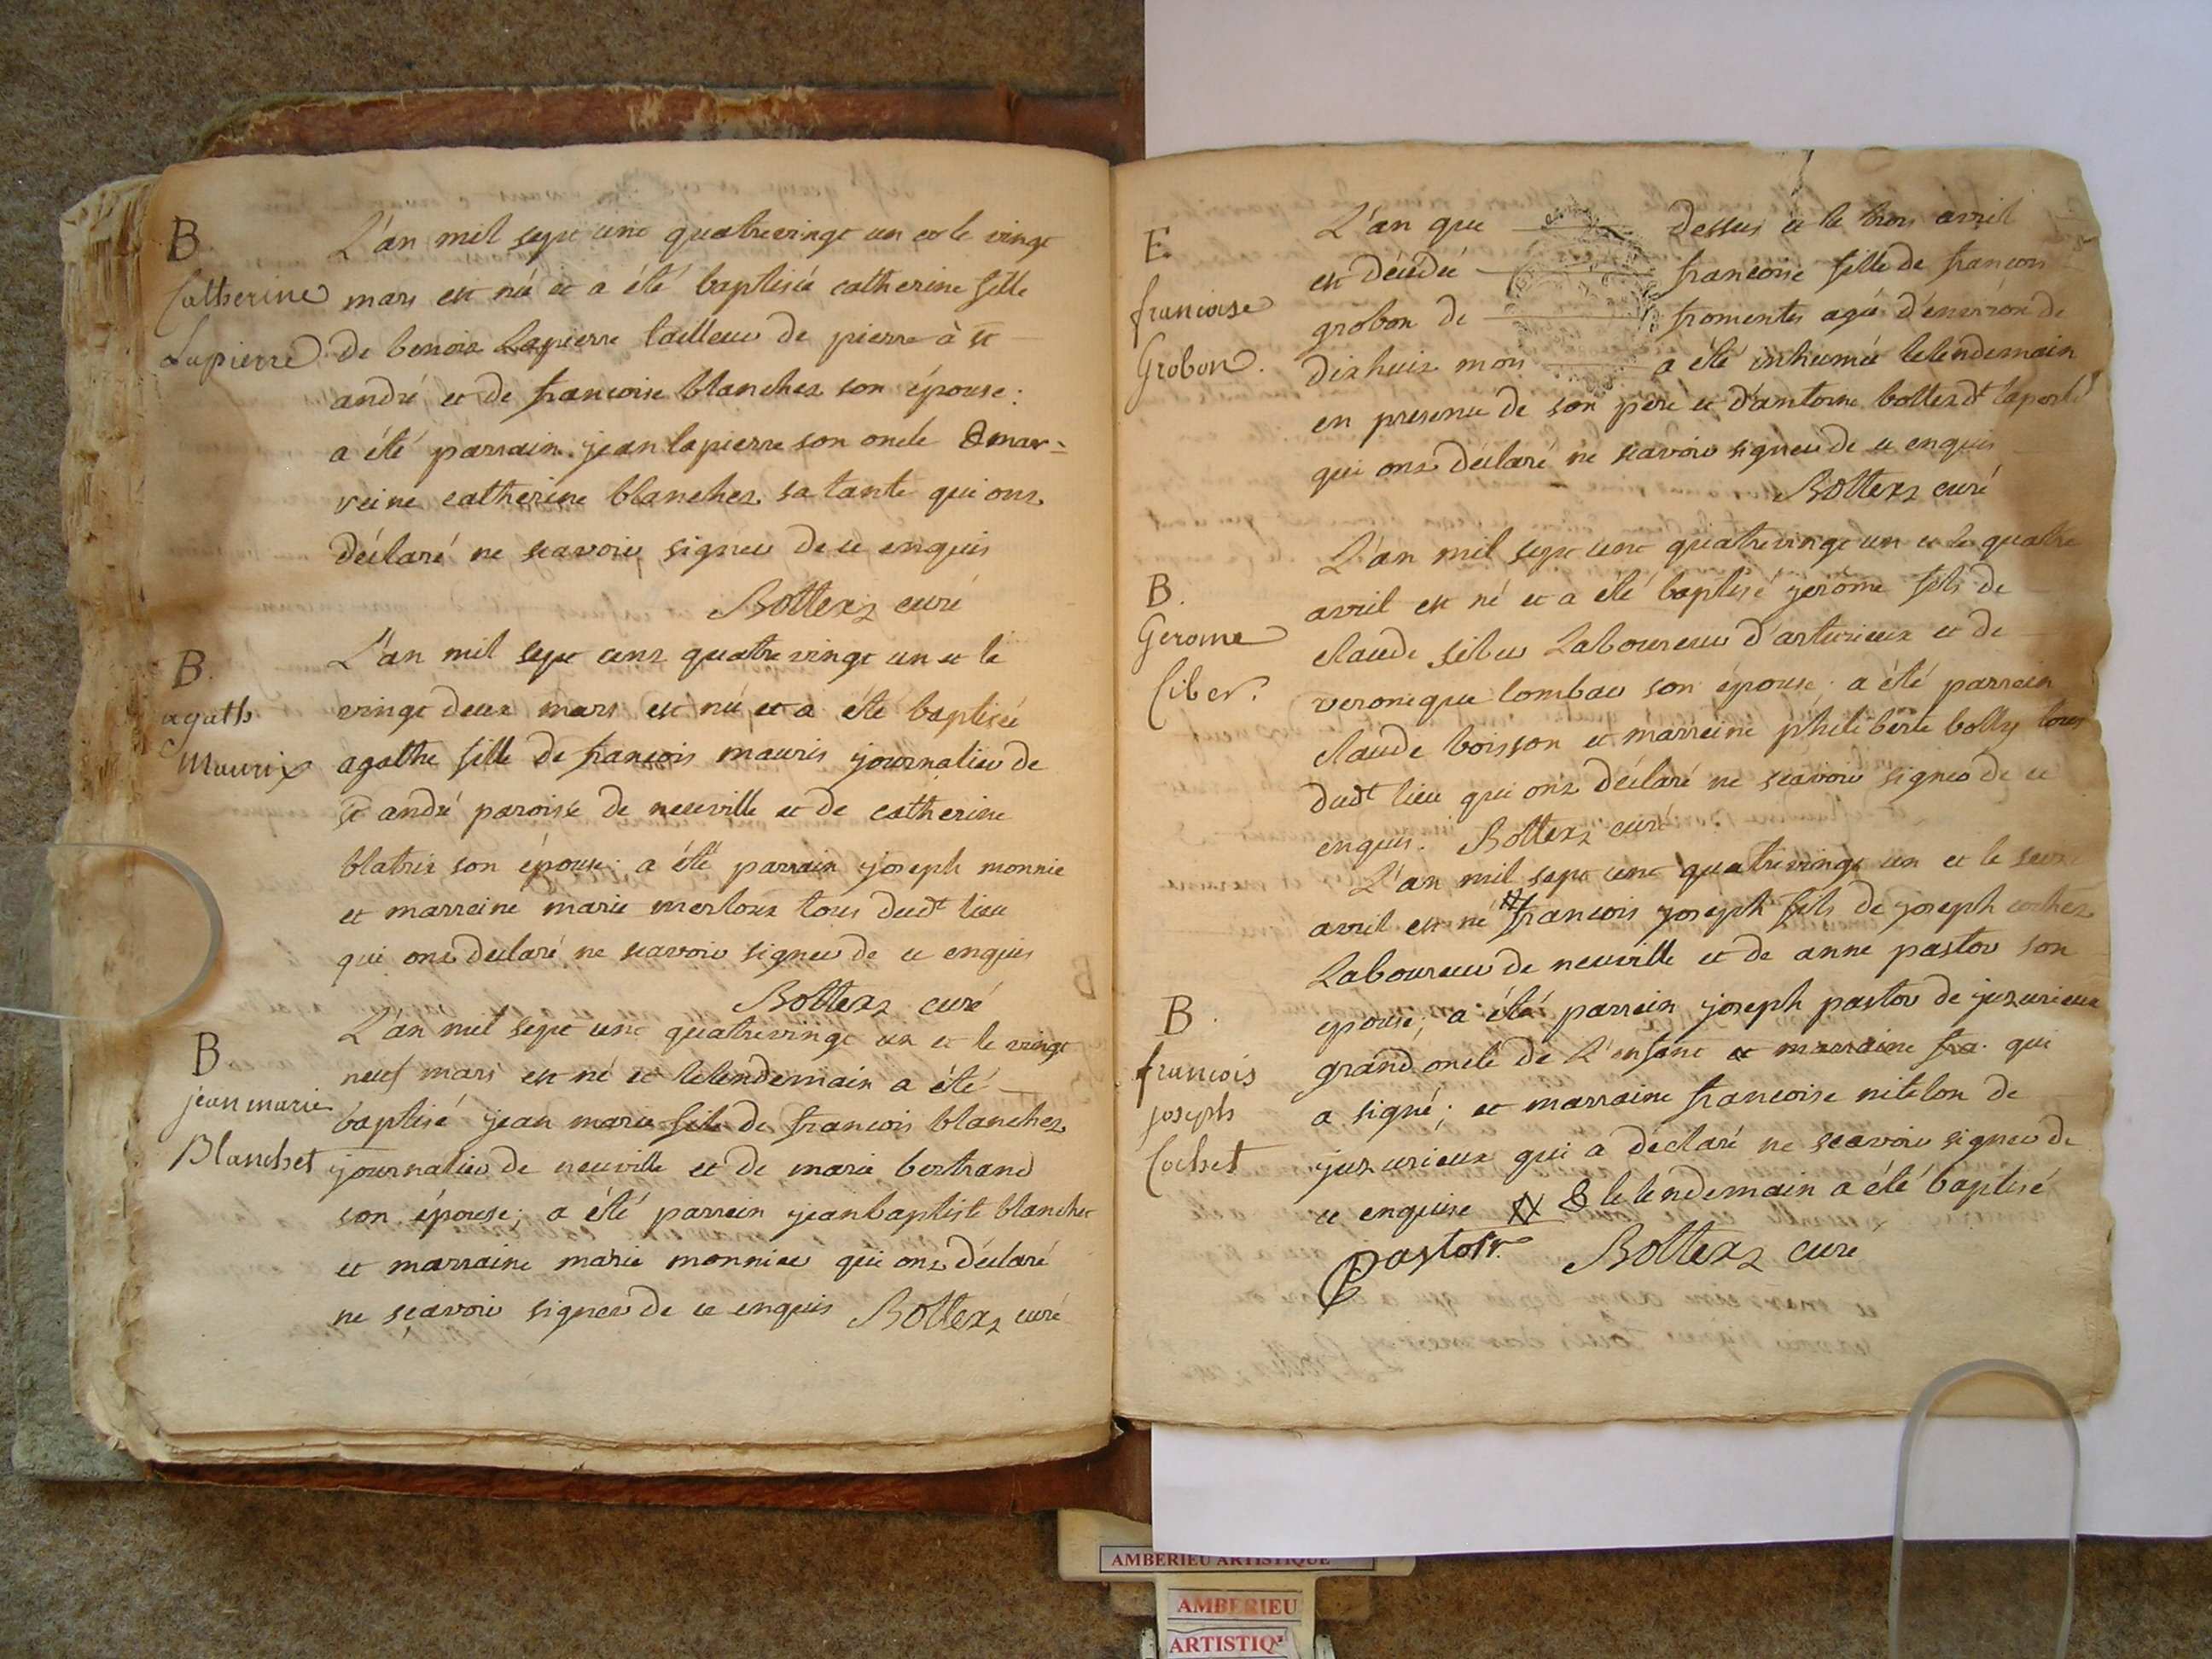 B.
Catherine
Lapierre
L'an mil sept cent quatrevingt un et le vingt
mars est née et a été baptisée catherine fille
de benoit Lapierre tailleur de pierre à st
andré et de francoise blanchet son épouse:
a été parrain jean lapierre son oncle & mar=
reine catherine blanchet sa tante qui ont
déclaré ne scavoir signer de ce enquis
Bottex curé
B.
agath
Maurix
L'an mil sept cent quatre vingt un et le
vingt deux mars est née et a été baptisée
agathe fille de francois mauris journalier de
st andré paroisse de neuville et de catherine
blatrix son épouse: a été parrain joseph monnie
et marreine marie merloux tous dudt lieu
qui ont declaré ne scavoir signer de ce enquis
Bottex curé
B
jean marie
Blanchet
L'an mil sept cent quatrevingt un et le vingt
neuf mars est né et le lendemain a été
baptisé jean marie fils de francois blanchet
journalier de neuville et de marie bertrand
son épouse; a été parrein jeanbaptiste blanchet
et marraine marie monnier qui ont déclaré
ne scavoir signer de ce enquis Bottex curé
E.
francoise
Grobon.
L'an que dessus et le trois avril
est décédée francoise fille de francois
grobon de fromentes agée d'environ de
dixhuit mois a été inhumée le lendemain
en presence de son pere et d'antoine bottex dt laporte
qui ont déclaré ne scavoir signer de ce enquis
Bottex curé
B.
Gerome
Ciber.
L'an mil sept cent quatrevingt un et le quatre
avril est né et a été baptisé jerome fils de
claude siber Laboureur d'arturieux et de
veronique lombar son épouse: a été parrein
claude boisson et marreine philiberte bolly tous
dudt lieu qui ont déclaré ne scavoir signer de ce
enquis. Bottex curé
B.
francois
joseph
Cochet
L'an mil sept cent quatrevingt un et le
avril est né # francois joseph fils de joseph cochet
Laboureur de neuville et de anne pastor son
epouse; a été parrein joseph pastor de juzurieux
grand oncle de L'enfant et marraine fra. qui
a signé; et marraine francoise nitelon de
juzurieux qui a déclaré ne scavoir signer de
ce enquise # & le lendemain a été baptisé
Pastor. Bottex curé
AMBERIEU ARTISTIQUE
AMBERIEU
ARTISTIQ